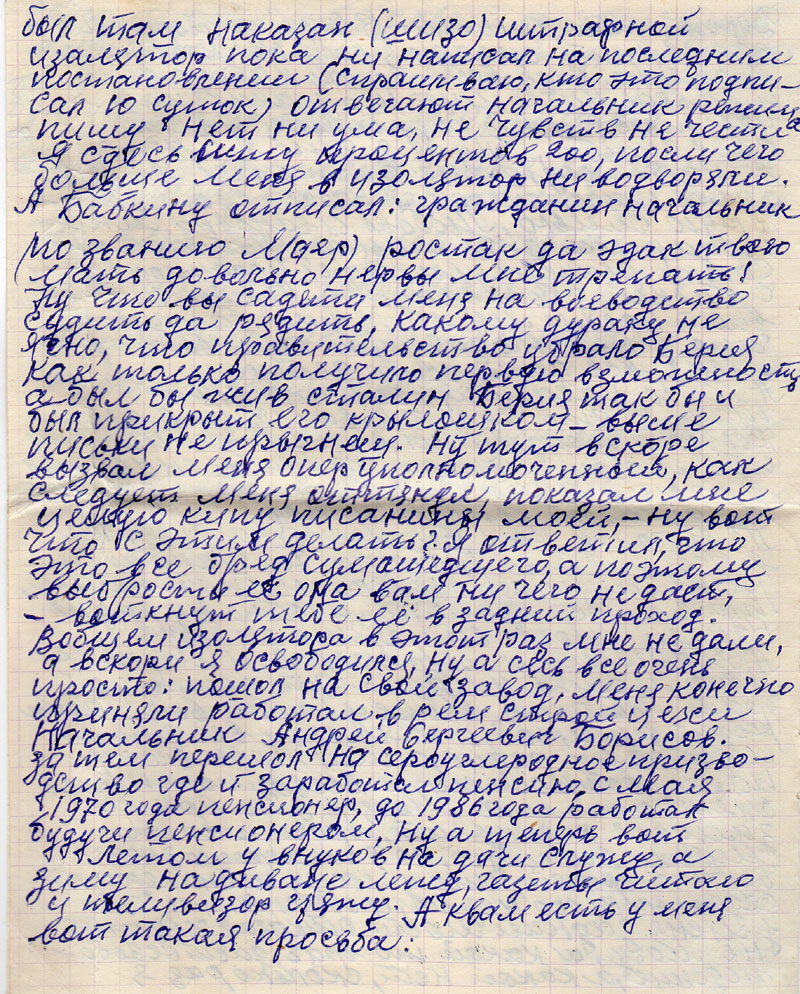 был там наказан (шизо) штрафной
изалятор пока ни написал на последним
постановлении (спрашиваю, кто это подпи-
сал 10 суток) отвечают начальник режима
пишу нет ни ума, не чувств не чести
Я сдесь сижу процентов 200, посли чего
больше меня в изолятор ни водворяли.
А Бабкину отписал: гражданин начальник
(по званию Мдяр) ростак да эдак твою
мать довольно нервы мне трепать!
Ну что вы садети меня на воеводство
судить да рядить, какому дураку не
ясно, что правительство убрало Берия
как только получило первую взможность
а был бы жив сталин Берия так бы и
был прикрыт его крылошком – выше
письки не прыгнеш. Ну тут вскоре
вызвал меня оперуполномоченный, как
следует меня оттянул, показал мне
целую кипу писанины моей, – ну вот
что с этим делать? Я ответил, что
это все бред сумашедшего, а поэтому
выбросьте её она вам ни чего не даст,
– воткнут тебе её в задний проход.
Вобщем изолятора в этот раз мне не дали,
а вскори я освободился, ну а сесь все очень
просто: пошол на свой завод, меня конечно
приняли работал в рем строй цехи
Начальник Андрей Сергеевич Борисов.
за тем перешол на сероуглеродное призво-
дство где и заработал пенсию, с мая
1970 года пенсионер, до 1986 года работал
будучи пенсионером, ну а теперь вот
Летом у внуков на дачи служу, а
зиму на диване лежу, газеты читаю
и теливизор гляжу. А к вам есть у меня
вот такая просьба: